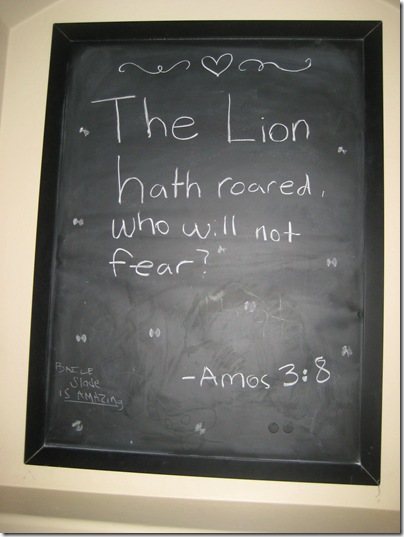 The Lion
hath roared,
who will not
fear?
-Amos 3:8
Slade
is AMAZing